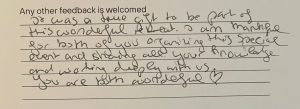 Any other feedback is welcomed
It was a true gift to be part of
this wonderful retreat. I am thankful
for both of you organizing this special
event and sharing all your knowledge
and working deeply with us.
You are both wonderful ♡